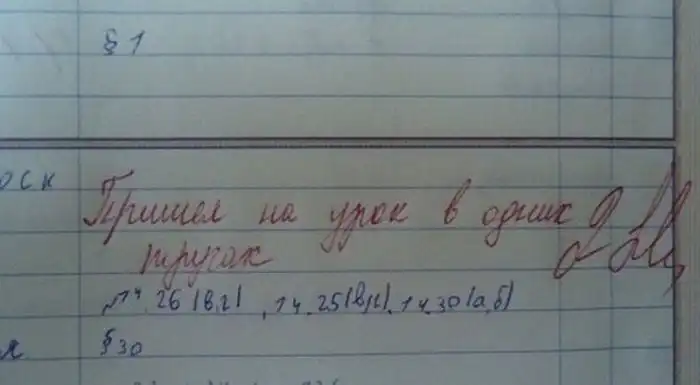 § 1
оск
Пришел на урок в одних
трусах
№ 14.26 (в,г), 14.25(в,г), 14.30(а,б)
§ 30